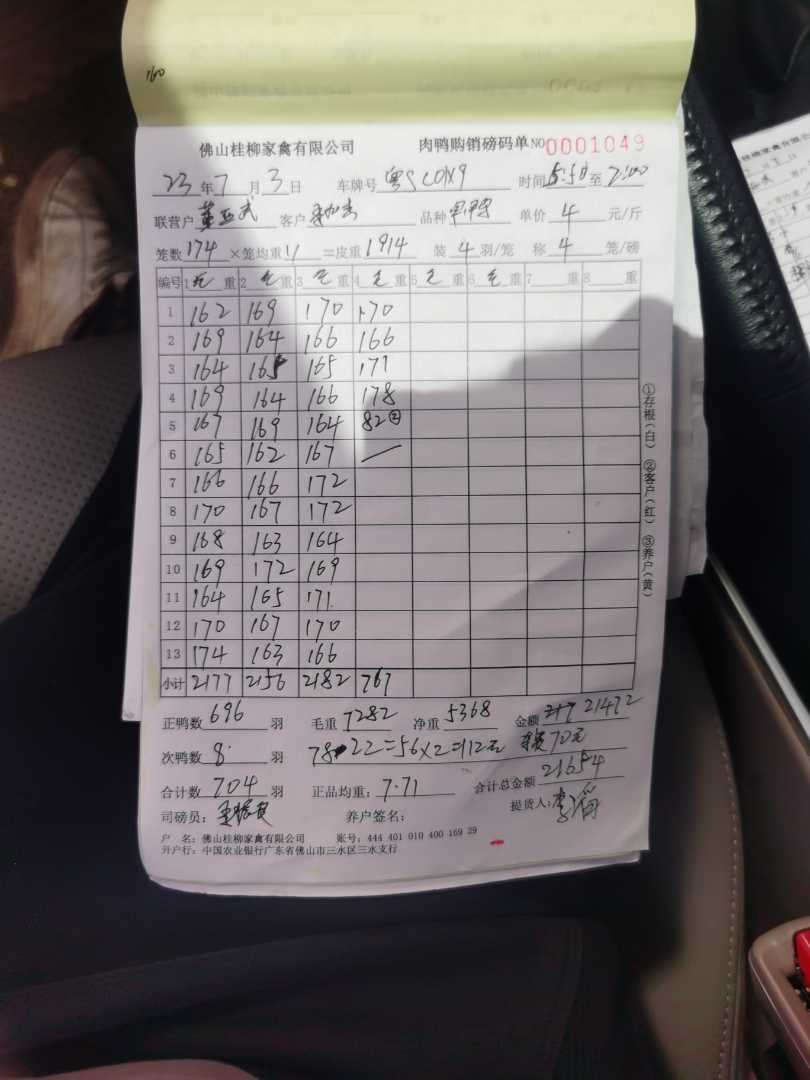 160
佛山桂柳家禽有限公司 肉鸭购销磅码单 NO 0001049
23年7月3日 车牌号 粤S 时间5:50至7:00
联营户 客户 品种 单价 4 元/斤
笼数174×笼均重11=皮重1914 装4羽/笼 称4笼/磅
编号 1毛重 2毛重 3毛重 4毛重 5毛重 6毛重 7 重 8 重
1 162 169 170 170
2 169 164 166 166
3 164 165 165 171
4 169 164 166 178
5 167 169 164 82②
6 165 162 167 —
7 166 166 172
8 170 167 172
9 168 163 164
10 169 172 169
11 164 165 171
12 170 167 170
13 174 163 166
小计 2177 2156 2182 767
正鸭数696羽 毛重7282 净重5368 金额 21472
次鸭数8羽 78-22=56×2=112元 70元
合计数704羽 正品均重:7.71 合计总金额21654
司磅员: 养户签名: 提货人:
户 名:佛山桂柳家禽有限公司 账号:444 401 010 400 169 29
开户行:中国农业银行广东省佛山市三水区三水支行
①存根(白) ②客户(红) ③养户(黄)